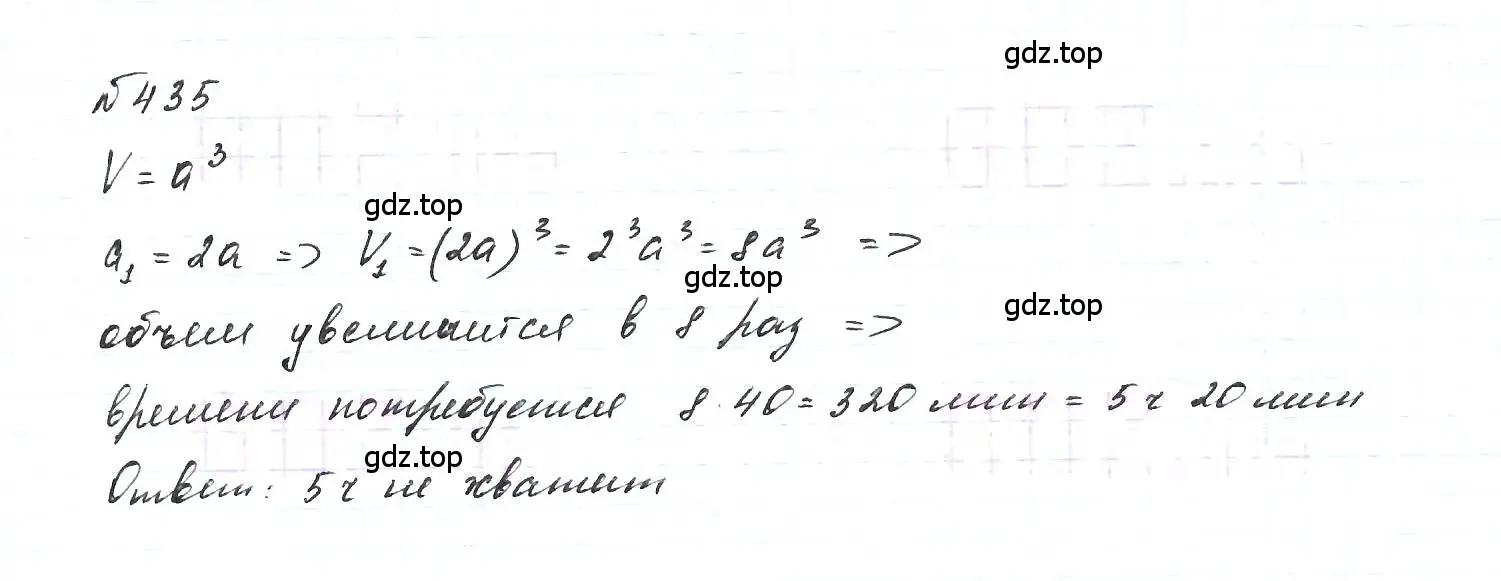 gdz.top
№ 435
V = a³
gdz.top
a₁ = 2a => V₁ = (2a)³ = 2³a³ = 8a³ =>
gdz.top
gdz.top
объем увеличится в 8 раз =>
времени потребуется 8·40 = 320 мин = 5 ч 20 мин
gdz.top
Ответ: 5 ч не хватит